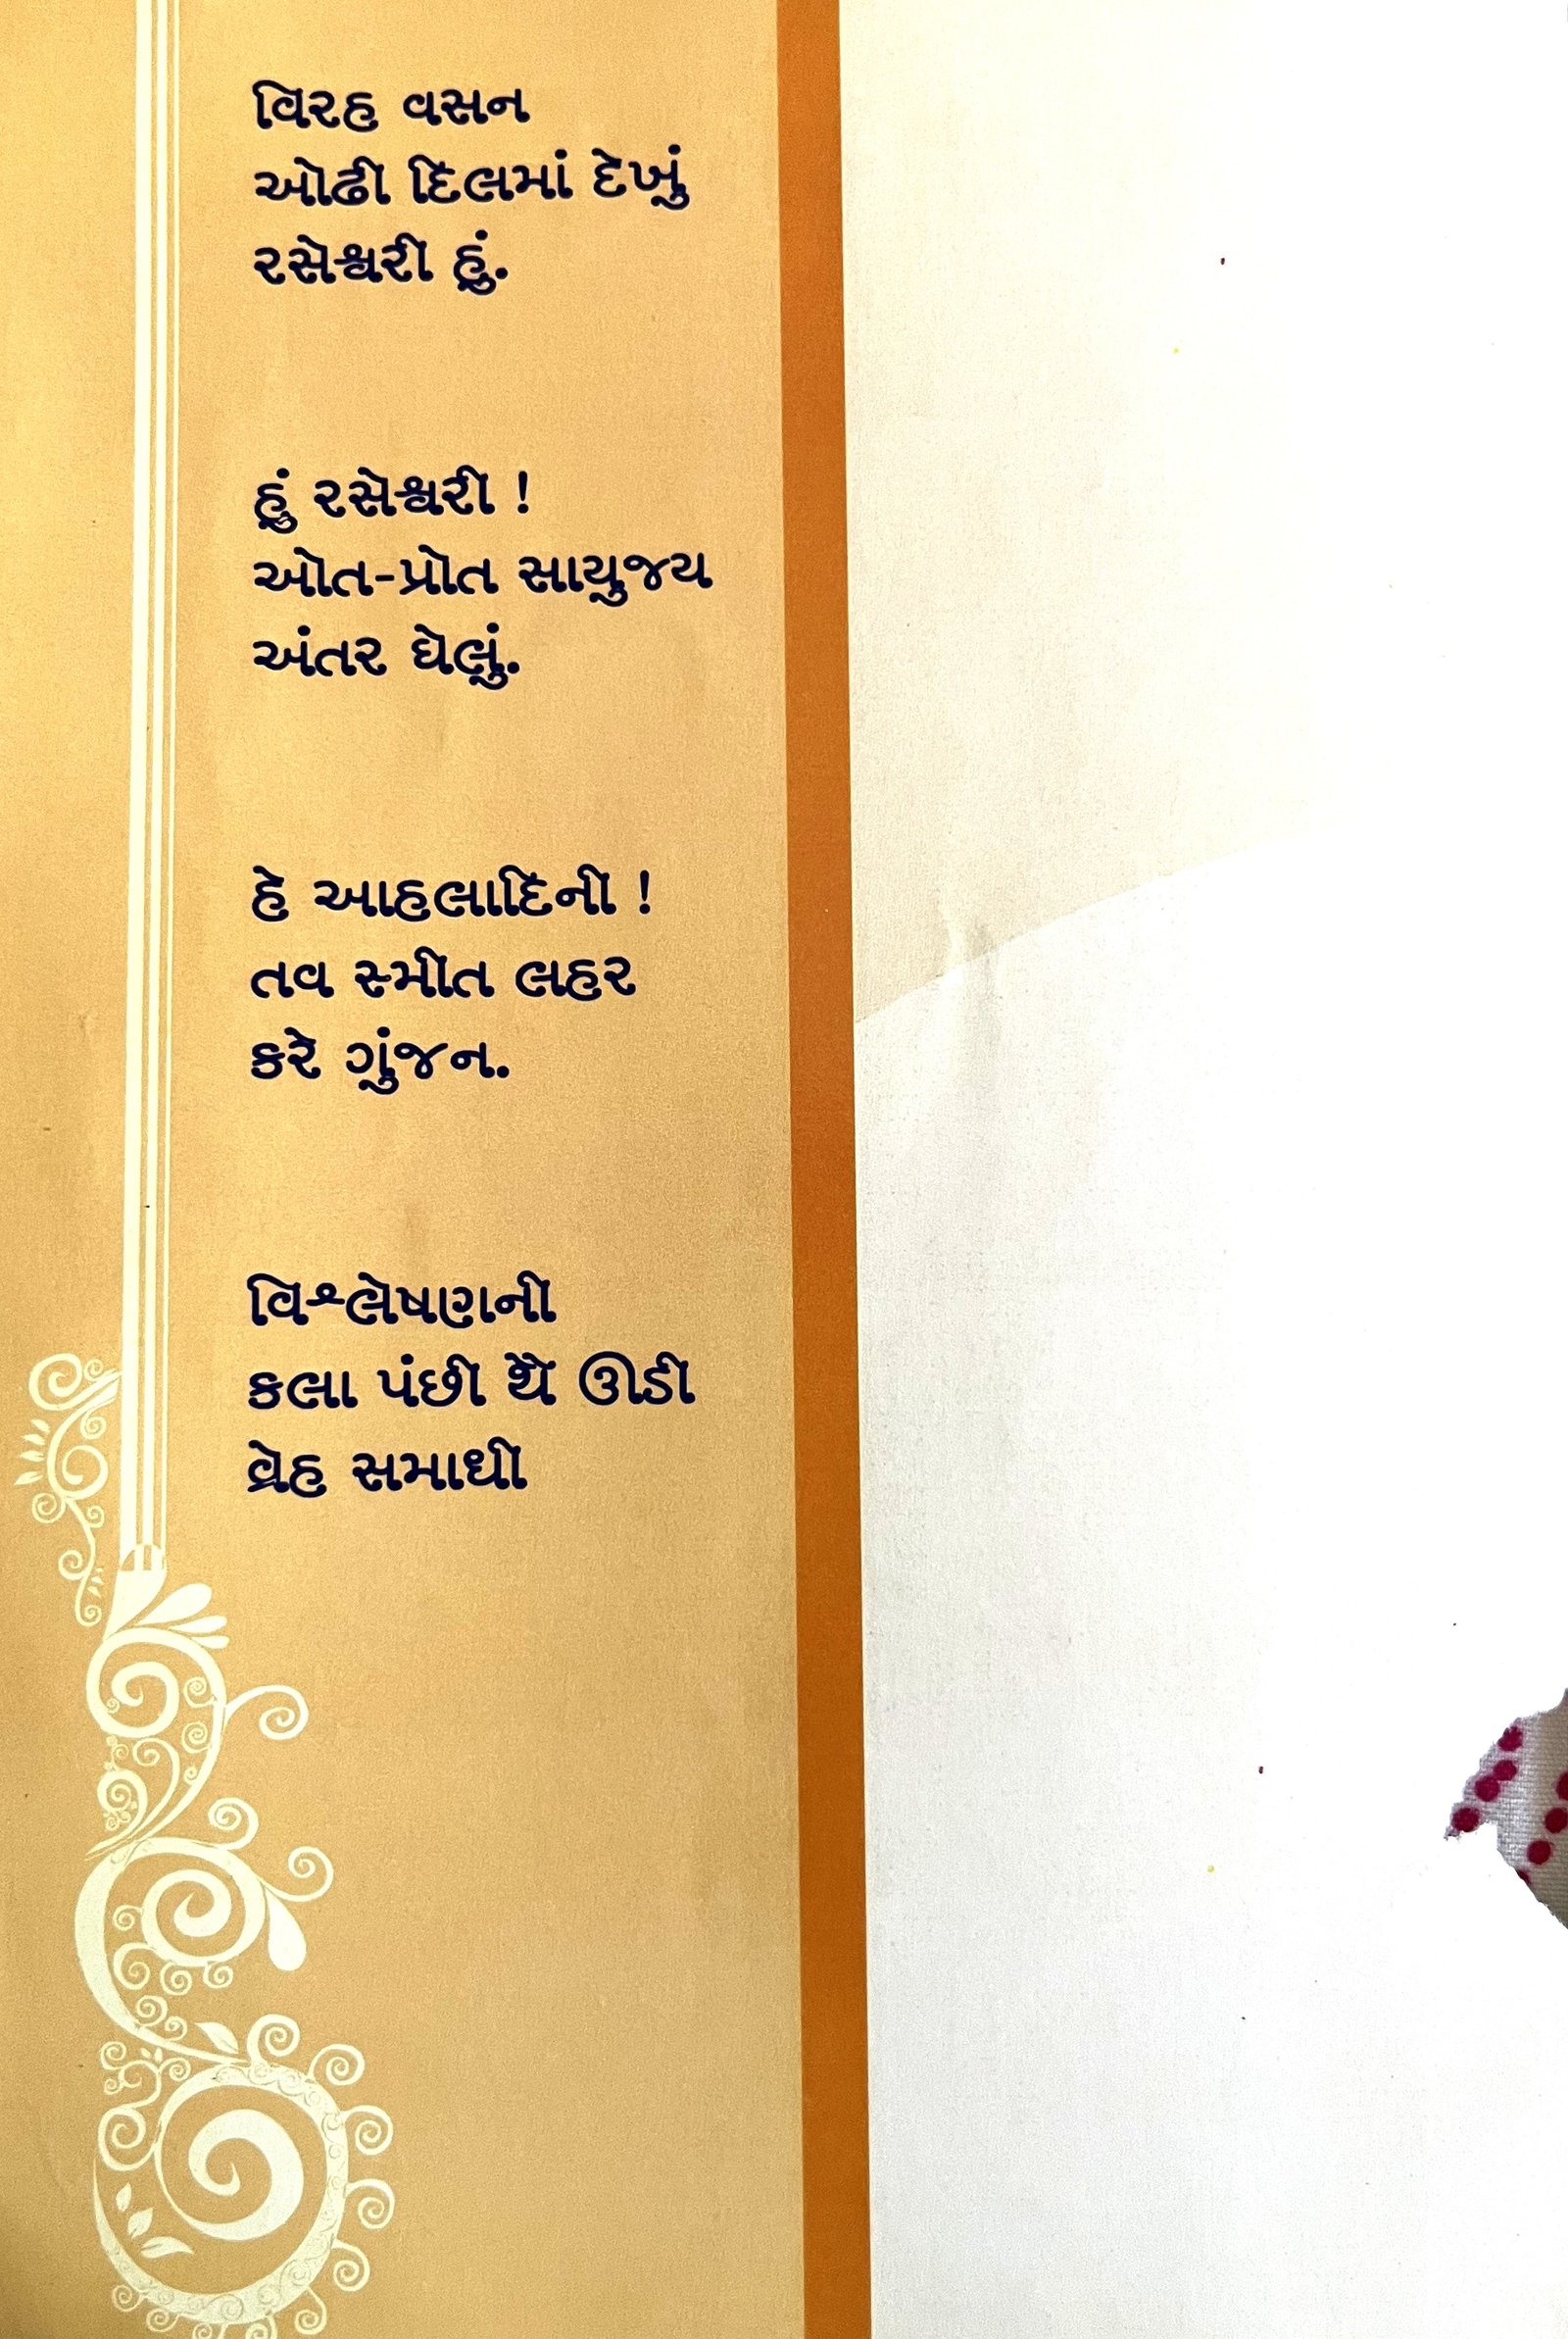 વિરહ વસન
ઓઢી દિલમાં દેખું
રસેશ્વરી હું.
હું રસેશ્વરી !
ઓત-પ્રોત સાયુજય
અંતર ઘેલું.
હે આહલાદિની !
તવ સ્મીત લહર
કરે ગુંજન.
વિશ્લેષણની
કલા પંછી થૈ ઊડી
વ્રેહ સમાધી